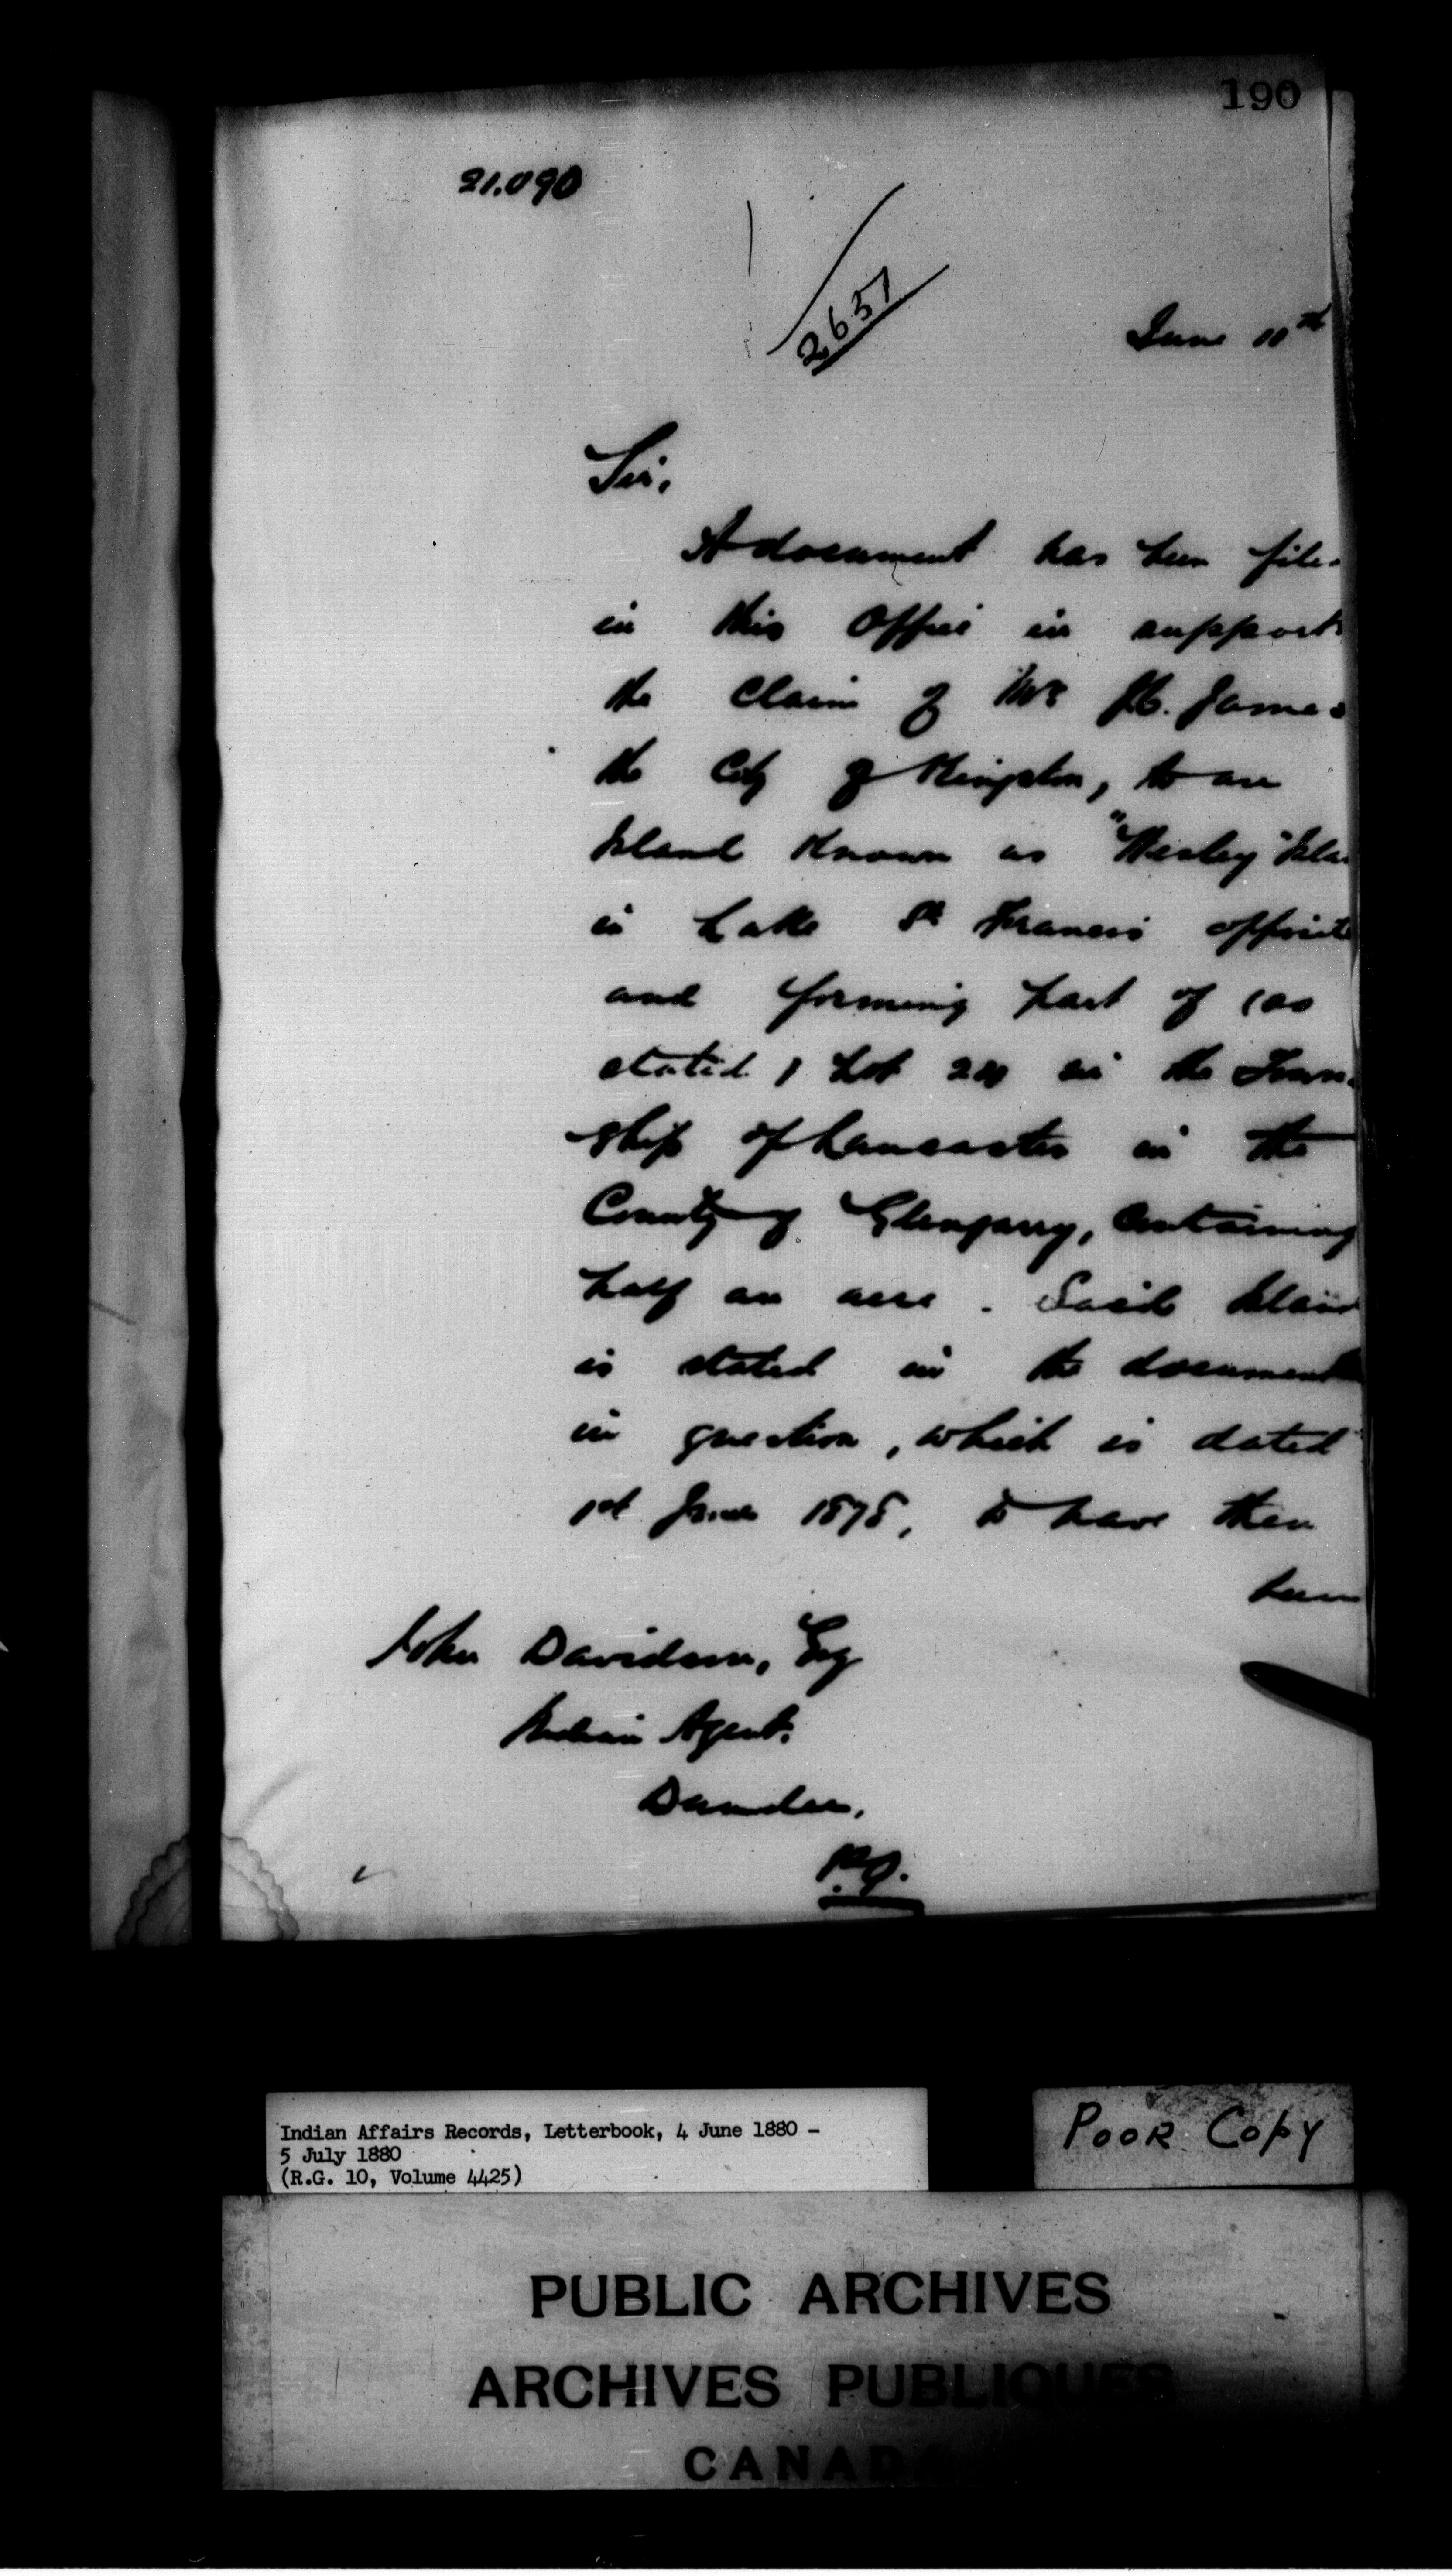 190
21.090
2657
June 10th
Sir,
A document has been file
in this Office in support
the claim of Mr James
the City of Kingston, to an
Island known as "Wesley" Isla
in Lake St Francis opposite
and forming part of (as
stated) Lot in the Town
ship of Lancaster in the
County of Glengarry, containing
half an acre. Said Island
is stated in the document
in question, which is dated
1st June 1878, to have then
been
John Davidson, Esq
Indian Agent.
Dundee,
P.Q.
Indian Affairs Records, Letterbook, 4 June 1880 -
5 July 1880
(R.G. 10, Volume 4425)
POOR COPY
PUBLIC ARCHIVES
ARCHIVES PUBLIQUES
CANADA